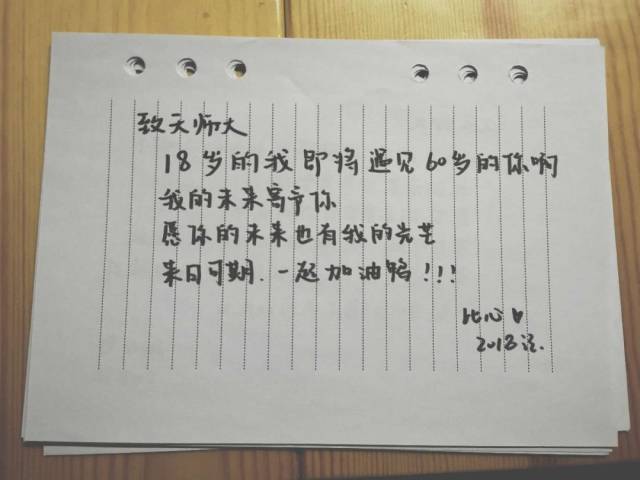 致天师大
18岁的我即将遇见60岁的你啊
我的未来寄予你
愿你的未来也有我的光芒
来日可期.一起加油鸭!!!
比心♥
2018注.